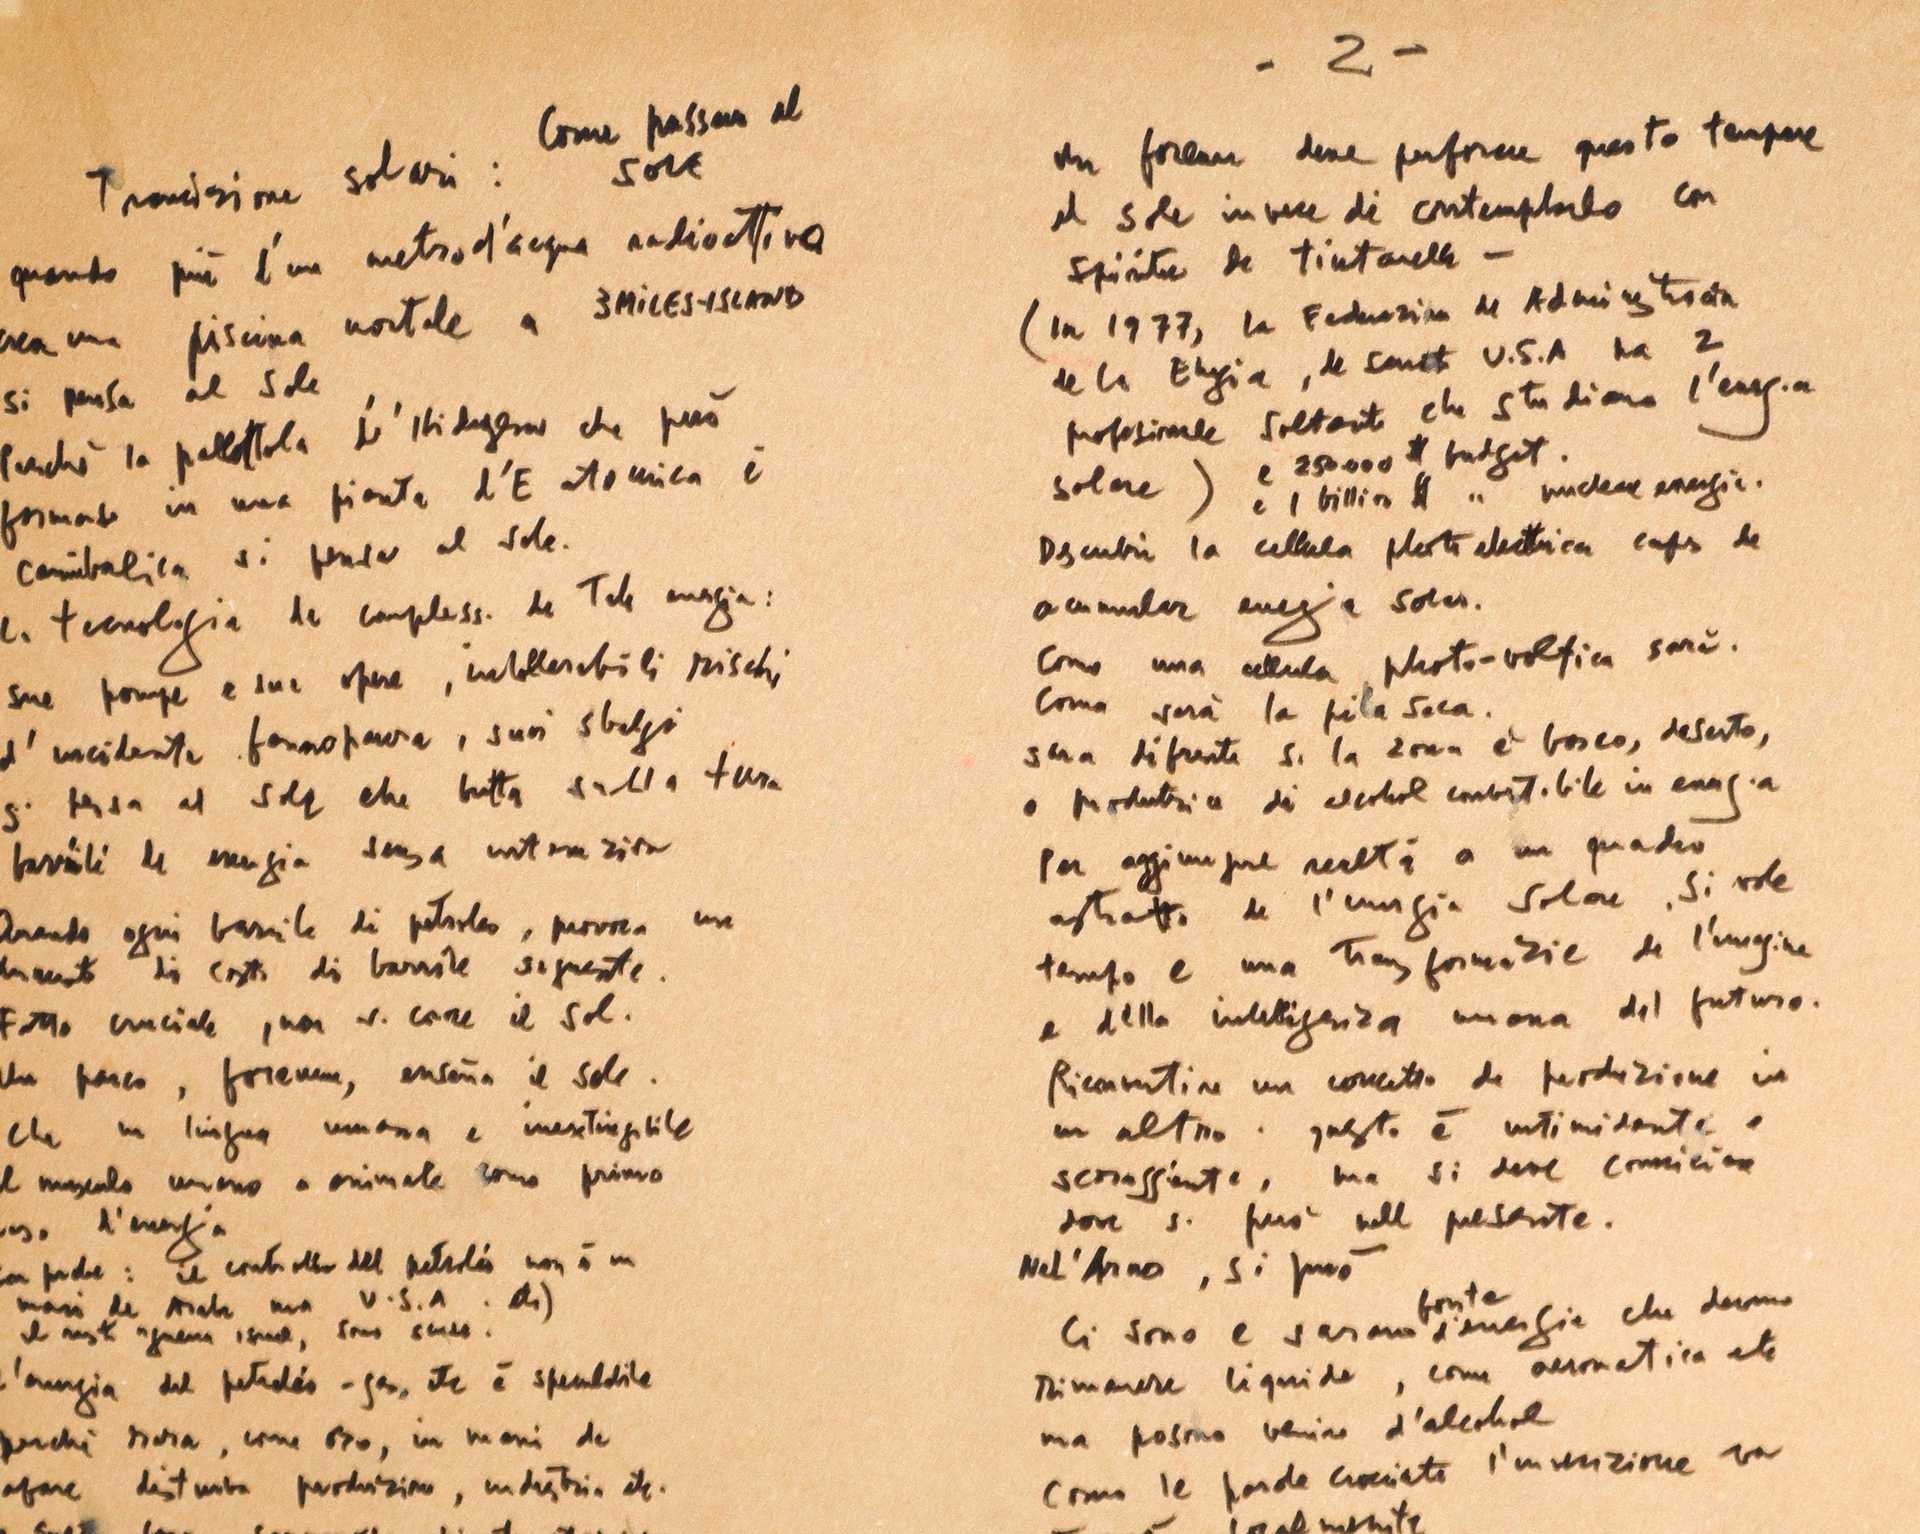 Come passar al
solari : SOLE
quando più d'un metro d'acqua radioattiva
crea una piscina mortale a 3MILES-ISLAND
si pensa al Sole
Perchè la pallottola che però
in una pianta d'E atomica è
canibalica si pensa al sole.
tecnologia de compless. de Tale energia:
sue pompe e sue opere, intollerabili rischi
d'incidente, suoi sbagli
si pensa al sole che butta sulla terra
barrili de energia senza
Quando ogni barrile di petroleo, provoca un
di costi di barrile seguente.
Fatto cruciale, non il sol.
Un parco, foreme, enseña il sole.
che in lingua umana e inestingibile
muscolo umano o animale como primo
d'energia
il controllo del petroleo non è in
mani de Arabi ma U.S.A.
sono
l'energia del petroleo - gas, etc è
perchè rara, come oro, in mani de
produzione, industria etc.
- 2 -
un foreme deve perforare questo tempore
el sole invece di contemplarlo con
spirito de tintarella -
(In 1977, la Federazion de Administracion
de la Energia, de U.S.A ha 2
profesionale soltanto che studiano l'energia
solare) e 250000 $ budget.
e 1 billion $ " nucleare energia.
Descubrir la cellula photoelettrica capas de
acumular energia solar.
Como una cellula photo-voltica sarà.
Como sarà la pila seca.
sara difrente si la zona è bosco, deserto,
o produtrice di alcohol combustibile in energia
Per aggiungere realtà a un quadro
astratto de l'energia solare, si vole
tempo e una transformazie de l'imagine
e della intelligenza umana del futuro.
un concetto de produzione in
un altro. questo è intimidante e
scoraggiante, ma si deve cominciare
dove si può nell presente.
Nel'Arno, si può
fonte
Ci sono e sarano d'energia che devono
rimanere liquide, come aeronatica etc
ma posono venire d'alcohol
Como le parole crociate l'invenzione va
localmente